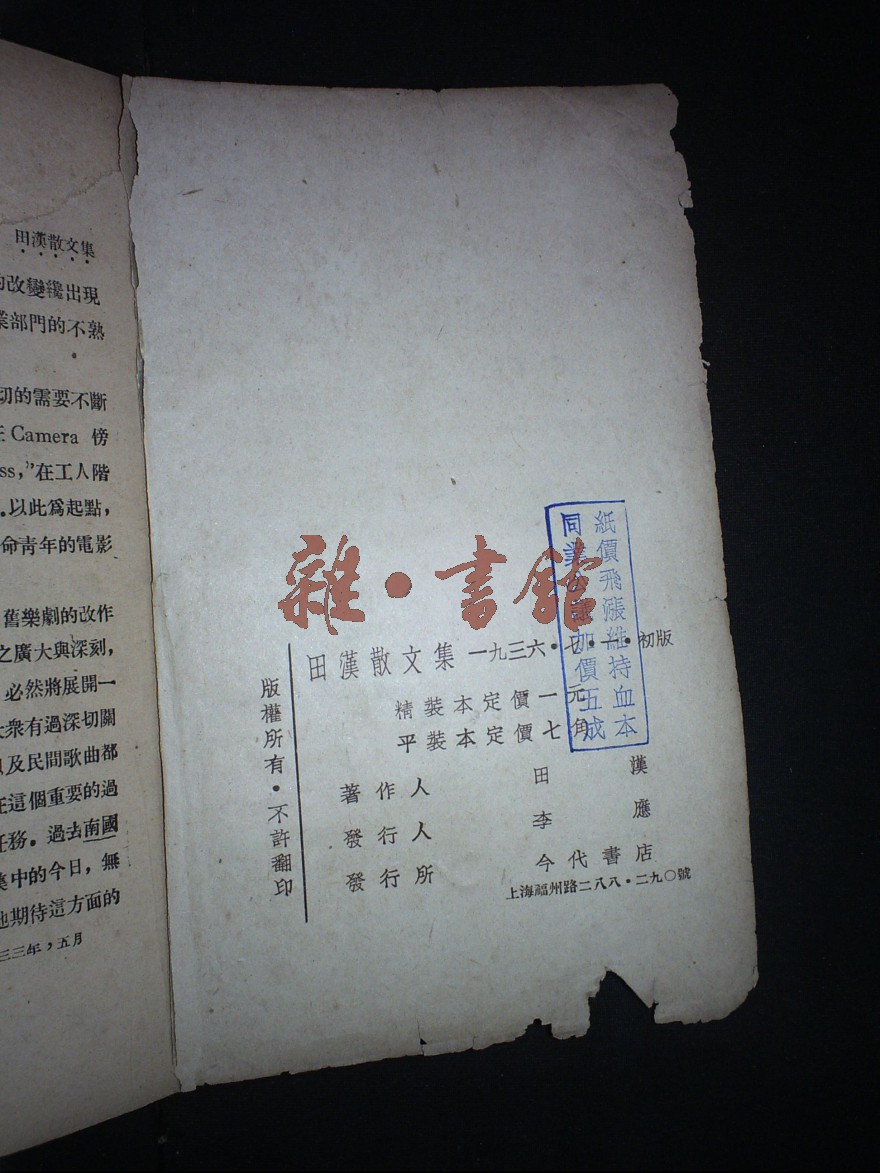 田漢散文集
的改變纔出現
業部門的不熟
切的需要不斷
在Camera 傍
ss,”在工人階
.以此爲起點,
命青年的電影
舊樂劇的改作
之廣大與深刻,
必然將展開一
大衆有過深切關
以及民間歌曲都
在這個重要的過
任務。過去南國
集中的今日,無
地期待這方面的
三三年,五月
雜•書館
紙價飛漲維持血本
同業公議加價五成
田漢散文集 一九三六•七•一•初版
精裝本定價一元
平裝本定價七角
著作人 田漢
發行人 李應
發行所 今代書店
上海福州路二八八•二九〇號
版權所有•不許翻印